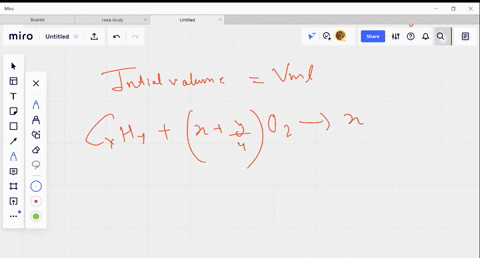 Miro
Boards
case study
Untitled
miro
Untitled
Share
Intial volume = Vml
CxHy + (x + y/4) O2 → x